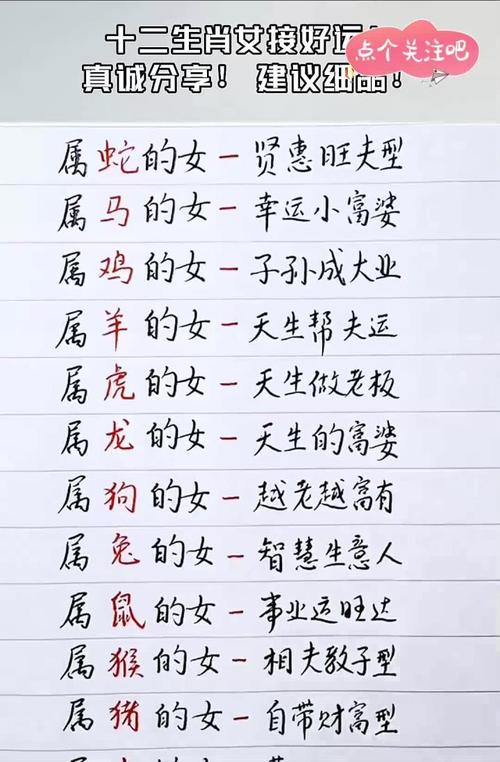 十二生肖女接好运!
点个关注吧
真诚分享! 建议细品!
属蛇的女－贤惠旺夫型
属马的女－幸运小富婆
属鸡的女－子孙成大业
属羊的女－天生帮夫运
属虎的女－天生做老板
属龙的女－天生的富婆
属狗的女－越老越富有
属兔的女－智慧生意人
属鼠的女－事业运旺达
属猴的女－相夫教子型
属猪的女－自带财富型